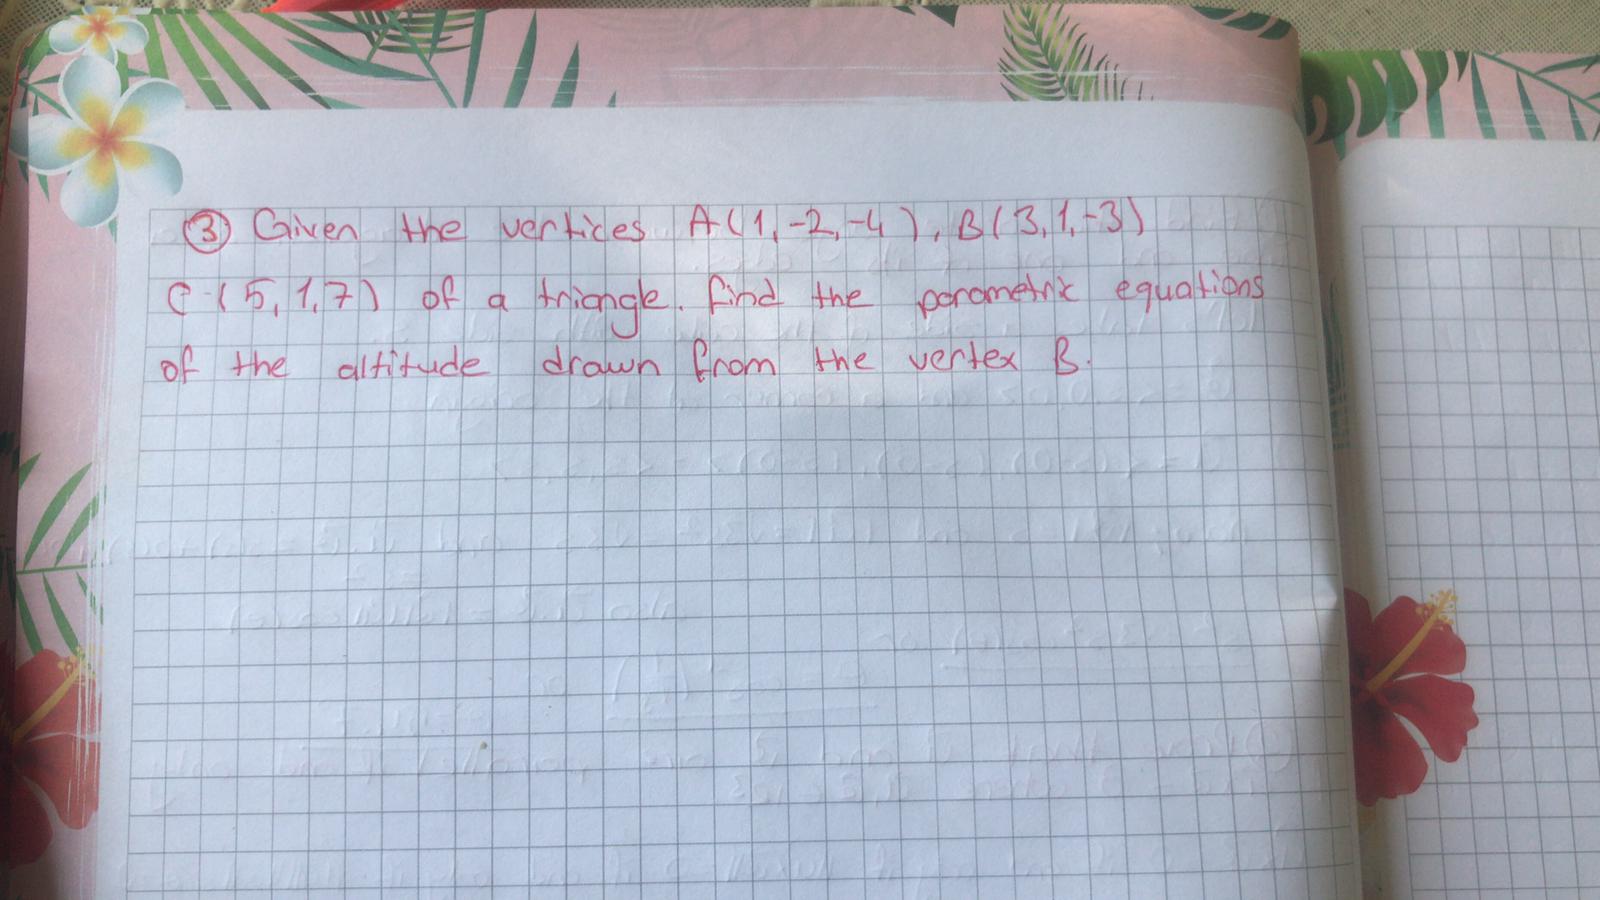 ③ Given the vertices A(1,-2,-4), B(3,1,-3)
C(5,1,7) of a triangle. find the parametric equations
of the altitude drawn from the vertex B.